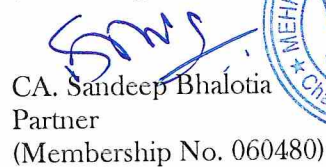 CA. Sandeep Bhalotia
Partner
(Membership No. 060480)
MEHA
Cha